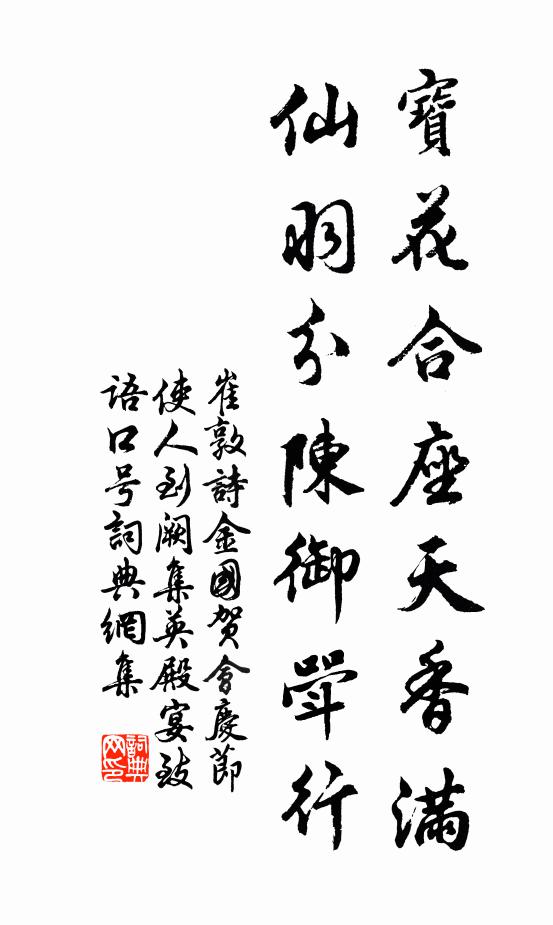 寶花合座天香滿
仙羽分陳御斝行
崔敦詩金國賀會慶節
使人到闕集英殿宴致
語口号詞典網集
詞典网印